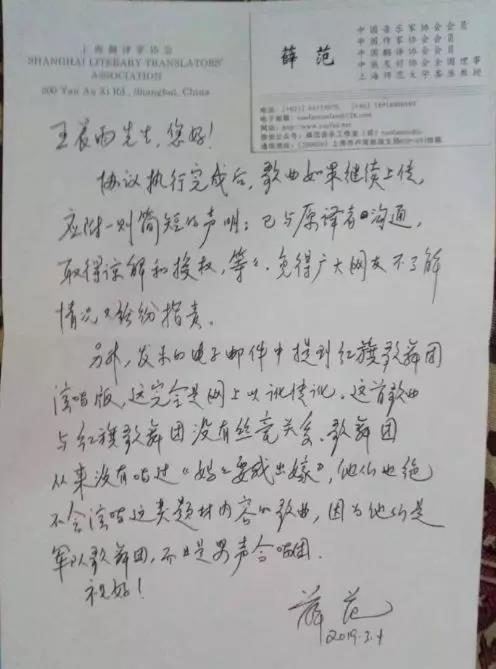 上海翻译家协会
SHANGHAI LITERARY TRANSLATORS'
ASSOCIATION
Shanghai, China
薛范
中国音乐家协会会员
中国作家协会会员
中国翻译协会会员
中俄友好协会全国理事
上海师范大学客座教授
王晨雨先生，您好！
协议执行完成后，歌曲如果继续上传，
应附一则简短的声明：已与原译者沟通，
取得谅解和授权，等等，免得广大网友不了解
情况又纷纷指责。
另外，发来的电子邮件中提到红旗歌舞团
演唱版，这完全是网上以讹传讹。这首歌曲
与红旗歌舞团没有丝毫关系。歌舞团
从来没有唱过《妈妈要我出嫁》，他们也绝
不会演唱这类题材内容的歌曲，因为他们是
军队歌舞团，而且是男声合唱团。
祝好！
薛范
2019.3.4